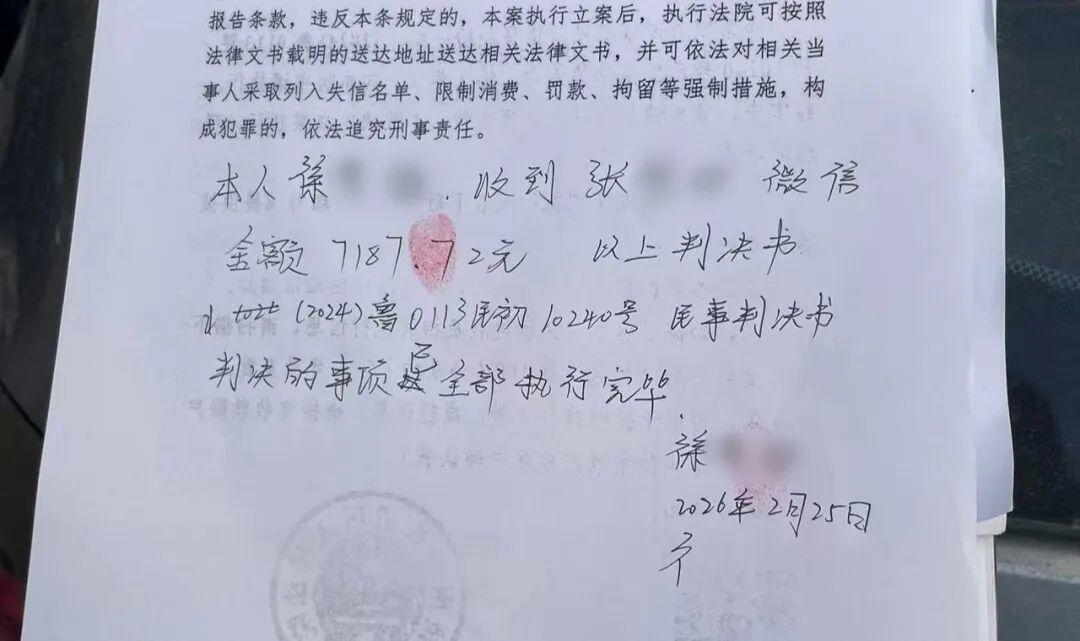 报告条款，违反本条规定的，本案执行立案后，执行法院可按照
法律文书载明的送达地址送达相关法律文书，并可依法对相关当
事人采取列入失信名单、限制消费、罚款、拘留等强制措施，构
成犯罪的，依法追究刑事责任。
本人徐 收到张 微信
金额7187.72元 以上判决书
(2024)鲁0113民初10240号 民事判决书
判决的事项已全部执行完毕.
徐
2026年2月25日